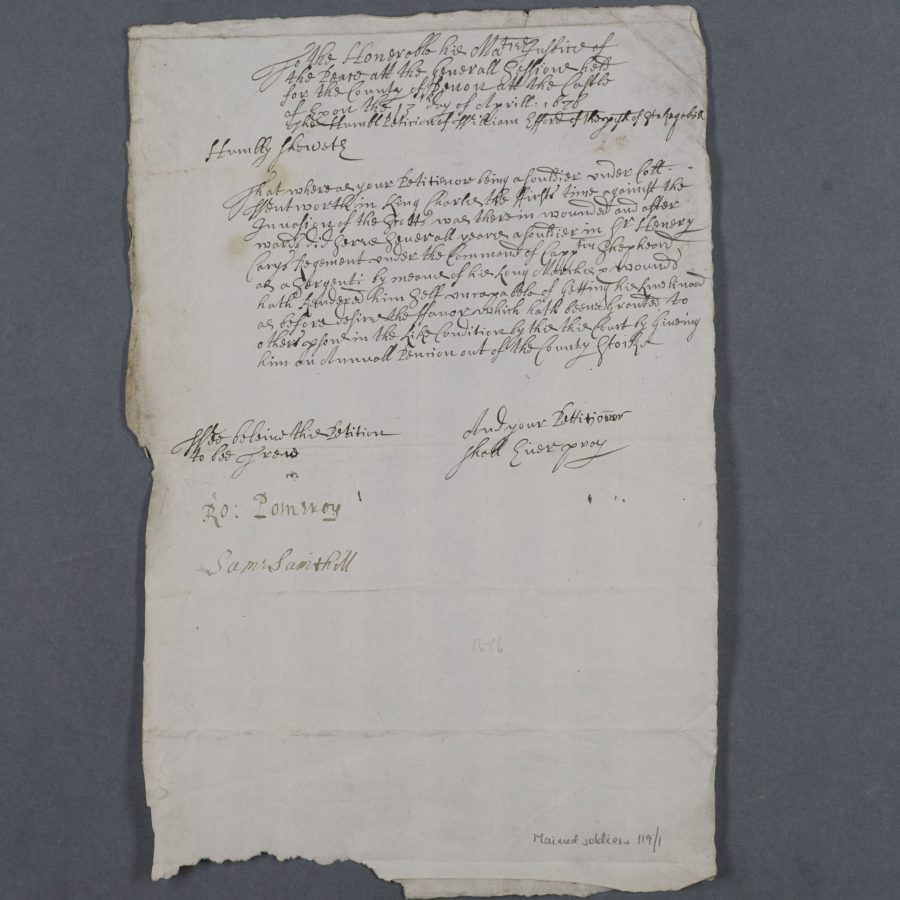 To the Honerable his Ma:ties Justices of
the Peace att the Generall Sessions held
for the County of Devon att the Castle
of Exon the 13th day of Aprill: 1676
The Humbl Peticion of William Efford of the psh of Stokegabrll
Humbly Sheweth
That whereas your Petitionor being a souldier under Coll
Wentworth in King Charles the ffirsts time against the
Invasion of the Scotts was there in wounded and after
wards did serve severall yeares a souldier in Sr Henery
Carys Regement under the Command of Captin Shepheard
as a Sergent: by meanes of his Long Marches & wounds
hath Rendered him self uncapabele of Getting his Livelihood
as before desires the ffavor which hath beene Granted to
others psons in the Like Condition by this Court by Giveing
him an Annuall Pencion out of the County Stocke
Wee beleive this Petition
to bee Trew
And your Pettitionor
shall Ever pray
Ro: Pomeroy
Sam: Sainthill
1676
Maimed soldiers 119/1